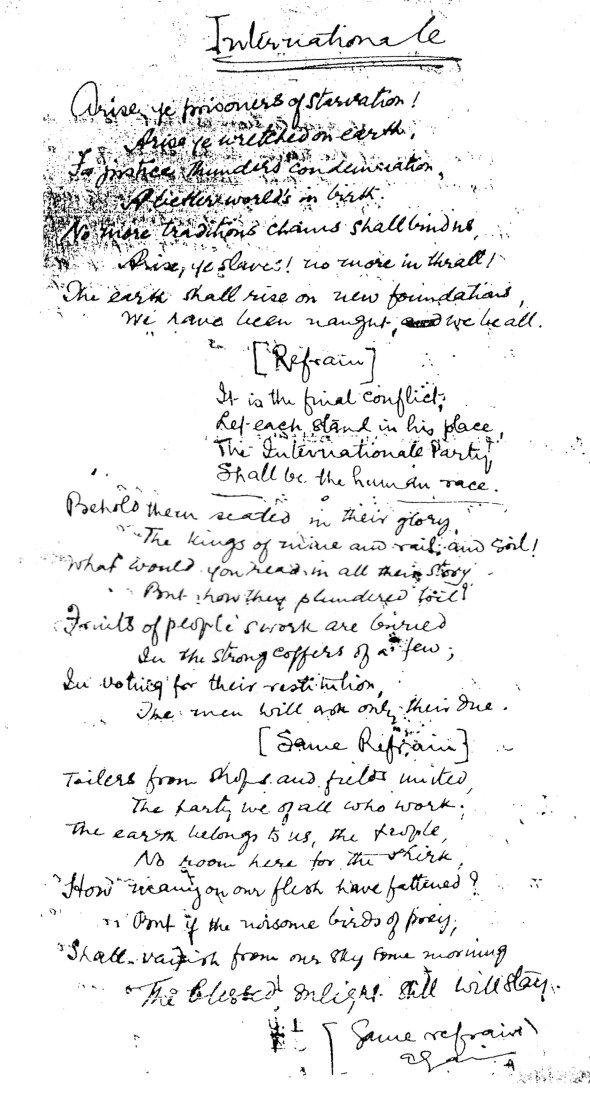 Internationale
Arise, ye prisoners of starvation!
Arise ye wretched on earth,
For justice thunders condemnation,
A better world's in birth.
No more traditions chains shall bind us,
Arise, ye slaves! no more in thrall!
The earth shall rise on new foundations,
We have been naught, we be all.
[Refrain]
It is the final conflict;
Let each stand in his place,
The Internationale Party
Shall be the human race.
Behold them seated in their glory,
The kings of mine and rail, and soil!
What would you read in all their story
But how they plundered toil?
Fruits of people's work are buried
In the strong coffers of a few;
In voting for their restitution,
The men will ask only their due.
[Same Refrain]
Toilers from shops and fields united,
The party we of all who work;
The earth belongs to us, the people,
No room here for the shirk,
How many on our flesh have fattened?
But if the noisome birds of prey,
Shall vanish from our sky some morning
The blessed sunlight still will stay.
[Same refrain
again